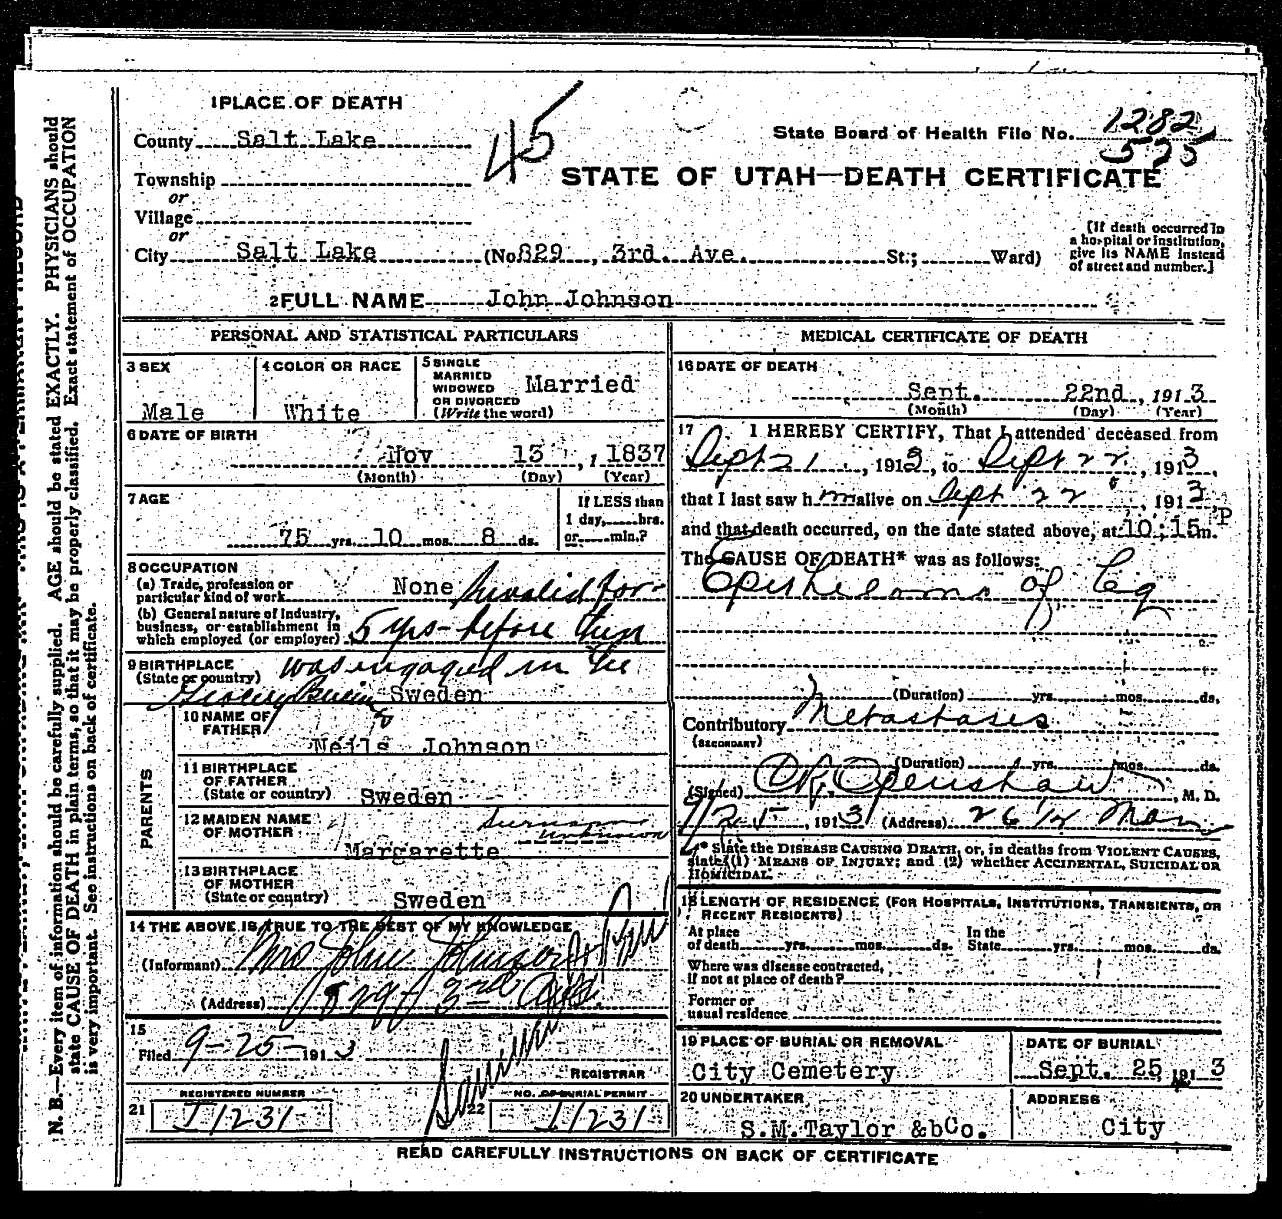 1 PLACE OF DEATH
County Salt Lake
45
State Board of Health File No. 1282
575
Township
or
STATE OF UTAH—DEATH CERTIFICATE
Village
or
City Salt Lake (No 829, 3rd. Ave. St.; Ward)
[If death occurred in
a hospital or institution,
give its NAME instead
of street and number.]
2 FULL NAME John Johnson
PERSONAL AND STATISTICAL PARTICULARS
3 SEX
Male
4 COLOR OR RACE
White
5 SINGLE
MARRIED
WIDOWED
OR DIVORCED
(Write the word)
Married
6 DATE OF BIRTH
Nov 13, 1837
(Month) (Day) (Year)
7 AGE
75 yrs. 10 mos. 8 ds.
If LESS than
1 day, hrs.
or min.?
8 OCCUPATION
(a) Trade, profession or
particular kind of work None Invalid for
(b) General nature of industry,
business, or establishment in
which employed (or employer) 5 yrs- before then
9 BIRTHPLACE was engaged in the
(State or country)
Grocery Sweden
10 NAME OF
FATHER
Neils Johnson
11 BIRTHPLACE
OF FATHER
(State or country) Sweden
12 MAIDEN NAME
OF MOTHER
surname
unknown
Margarette
13 BIRTHPLACE
OF MOTHER
(State or country) Sweden
PARENTS
14 THE ABOVE IS TRUE TO THE BEST OF MY KNOWLEDGE
(Informant) Mrs John Johnson
(Address) 829 3rd Ave.
15
Filed 9-25- 1913
REGISTRAR
REGISTERED NUMBER
21 I1231
NO. OF BURIAL PERMIT
22 I1231
MEDICAL CERTIFICATE OF DEATH
16 DATE OF DEATH
Sept. 22nd, 1913
(Month) (Day) (Year)
17 I HEREBY CERTIFY, That I attended deceased from
Sept 21, 1913, to Sept 22, 1913,
that I last saw h im alive on Sept 22, 1913
and that death occurred, on the date stated above, at 10:15 P m.
The CAUSE OF DEATH* was as follows:
Epithelioma of
(Duration) yrs. mos. ds.
Contributory Metastases
(SECONDARY)
(Duration) yrs. mos. ds.
(Signed) Openshaw, M. D.
9/25, 1913 (Address)
* State the DISEASE CAUSING DEATH, or, in deaths from VIOLENT CAUSES,
state (1) MEANS OF INJURY; and (2) whether ACCIDENTAL, SUICIDAL OR
HOMICIDAL.
18 LENGTH OF RESIDENCE (FOR HOSPITALS, INSTITUTIONS, TRANSIENTS, OR
RECENT RESIDENTS)
At place
of death yrs. mos. ds.
In the
State yrs. mos. ds.
Where was disease contracted,
if not at place of death?
Former or
usual residence
19 PLACE OF BURIAL OR REMOVAL
City Cemetery
DATE OF BURIAL
Sept. 25, 1913
20 UNDERTAKER
S.M.Taylor &bCo.
ADDRESS
City
READ CAREFULLY INSTRUCTIONS ON BACK OF CERTIFICATE
N. B.—Every item of information should be carefully supplied. AGE should be stated EXACTLY. PHYSICIANS should
state CAUSE OF DEATH in plain terms, so that it may be properly classified. Exact statement of OCCUPATION
is very important. See instructions on back of certificate.